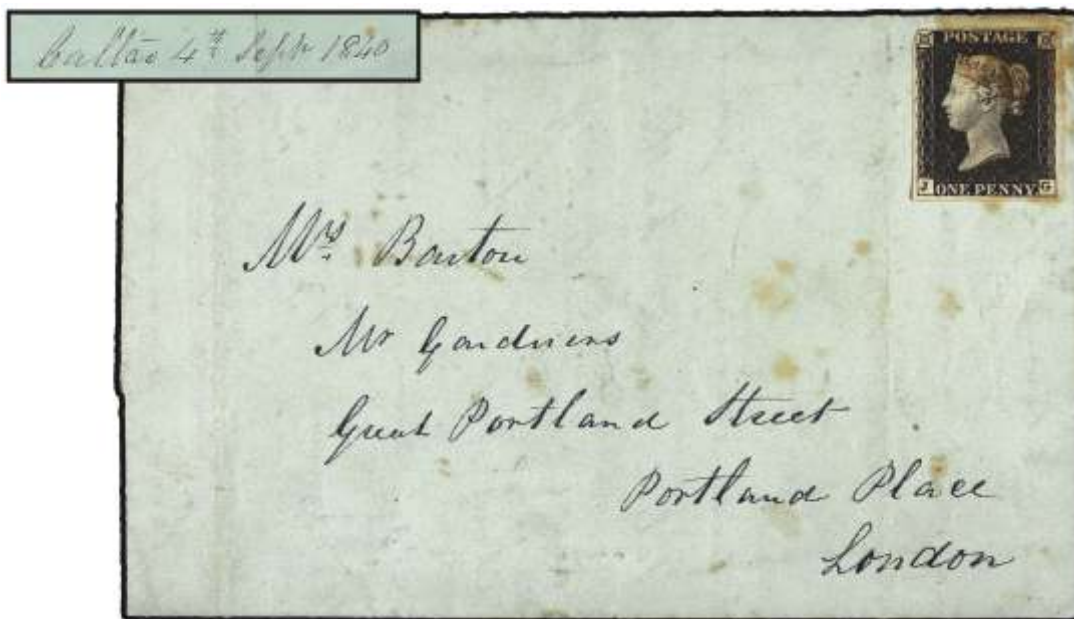 Callao 4th Sept 1840
POSTAGE
J ONE PENNY G
Mrs Barton
Mr Gardiners
Great Portland Street
Portland Place
London